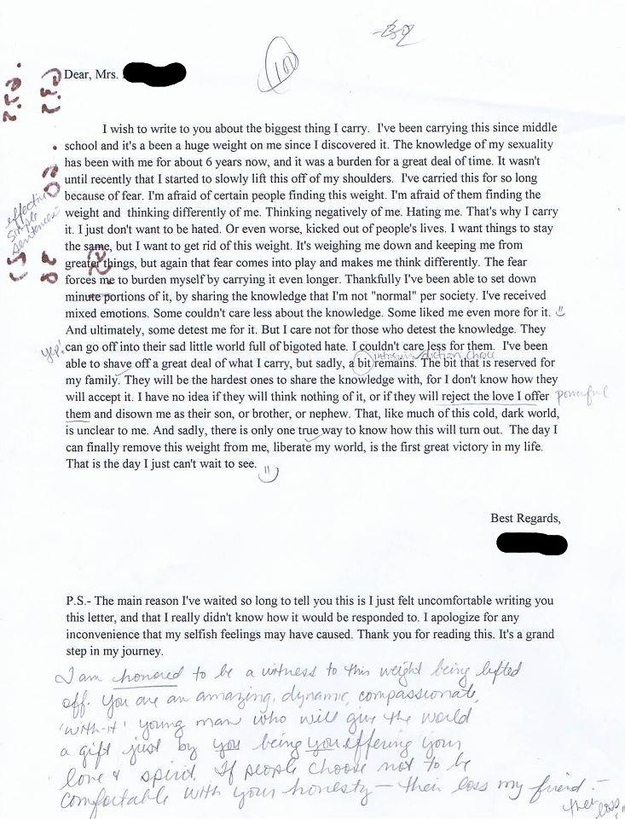 100
Dear, Mrs.
I wish to write to you about the biggest thing I carry. I've been carrying this since middle
school and it's a been a huge weight on me since I discovered it. The knowledge of my sexuality
has been with me for about 6 years now, and it was a burden for a great deal of time. It wasn't
until recently that I started to slowly lift this off of my shoulders. I've carried this for so long
because of fear. I'm afraid of certain people finding this weight. I'm afraid of them finding the
weight and thinking differently of me. Thinking negatively of me. Hating me. That's why I carry
it. I just don't want to be hated. Or even worse, kicked out of people's lives. I want things to stay
effective
simple
sentences
the same, but I want to get rid of this weight. It's weighing me down and keeping me from
greater things, but again that fear comes into play and makes me think differently. The fear
forces me to burden myself by carrying it even longer. Thankfully I've been able to set down
minute portions of it, by sharing the knowledge that I'm not "normal" per society. I've received
mixed emotions. Some couldn't care less about the knowledge. Some liked me even more for it.
And ultimately, some detest me for it. But I care not for those who detest the knowledge. They
yep!
can go off into their sad little world full of bigoted hate. I couldn't care less for them. I've been
diction choice
able to shave off a great deal of what I carry, but sadly, a bit remains. The bit that is reserved for
my family. They will be the hardest ones to share the knowledge with, for I don't know how they
will accept it. I have no idea if they will think nothing of it, or if they will reject the love I offer
powerful
them and disown me as their son, or brother, or nephew. That, like much of this cold, dark world,
is unclear to me. And sadly, there is only one true way to know how this will turn out. The day I
can finally remove this weight from me, liberate my world, is the first great victory in my life.
That is the day I just can't wait to see.
Best Regards,
P.S.- The main reason I've waited so long to tell you this is I just felt uncomfortable writing you
this letter, and that I really didn't know how it would be responded to. I apologize for any
inconvenience that my selfish feelings may have caused. Thank you for reading this. It's a grand
step in my journey.
I am honored to be a witness to this weight being lifted
off. You are an amazing, dynamic, compassionate,
'with-it' young man who will give the world
a gift just by you being you offering your
love & spirit. If people choose not to be
comfortable with your honesty – their loss my friend. –
their loss